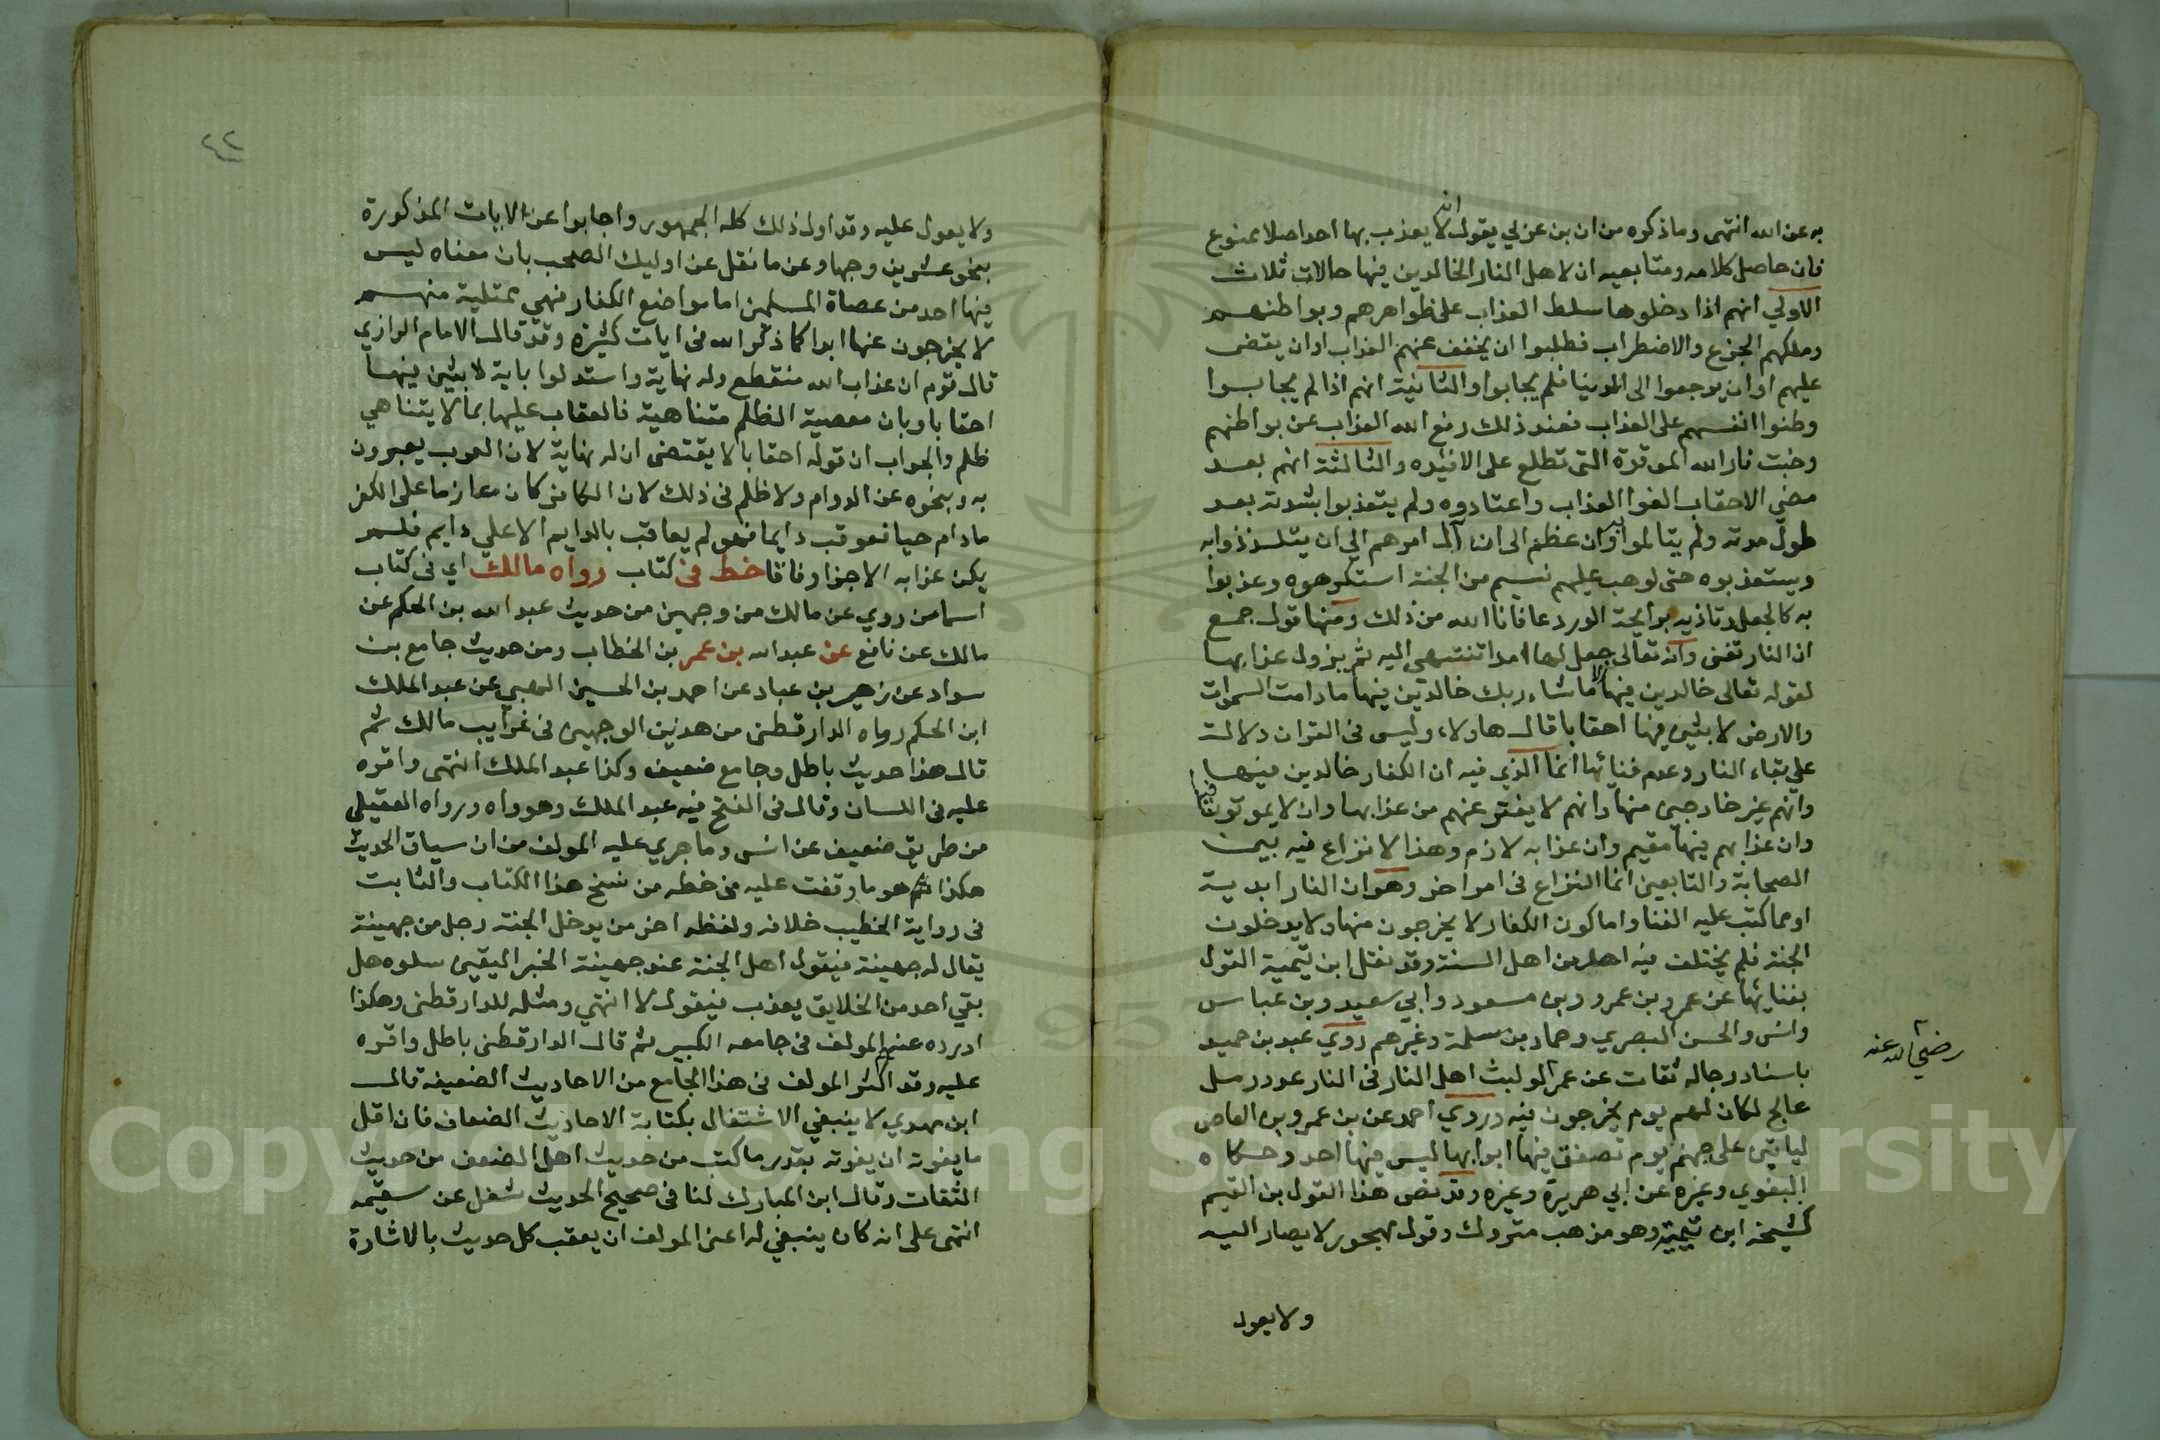 به عن الله انتهى وما ذكره من ان بن عربي يقول لا يعذب بها احد اصلا ممنوع
الله
فان حاصل كلامه ومتابعيه ان لاهل النار الخالدين فيها حالات ثلاث
الاولي انهم اذا دخلوها سلط العذاب على ظواهرهم وبواطنهم
وملكهم الجزع والاضطراب فطلبوا ان يخفف عنهم العذاب او ان يقضى
عليهم او ان يرجعوا الى الدنيا فلم يجابوا والثانية انهم اذا لم يجابوا
وطنوا انفسهم على العذاب فعند ذلك رفع الله العذاب عن بواطنهم
وخبت نار الله الموقدة التى تطلع على الافئده والثالثة انهم بعد
مضي الاحقاب الفوا العذاب واعتادوه ولم يتعذبوا بشدته بعد
طول مدته ولم يتالموا به وان عظم الى ان آل امرهم الي ان يتلذذوا به
ويستعذبوه حتى لو هب عليهم نسيم من الجنة استكرهوه وعذبوا
به كالجعل وتاذيه برايحة الورد عافانا الله من ذلك ومنها قول جمع
ان النار تفنى وانه تعالى جعل لها امدا تنتهي اليه ثم يزول عذابها
لقوله تعالى خالدين فيها الا ماشاء ربك خالدين فيها مادامت السموات
والارض لابثين فيها احقابا قال هاولاء وليس فى القران دلالة
علي بقاء النار وعدم فنائها انما الذي فيه ان الكفار خالدين فيها
وانهم غير خارجين منها وانهم لا يفتر عنهم من عذابها وان لا يموتون فيها
وان عذابهم فيها مقيم وان عذابه لازم وهذا لا نزاع فيه بين
الصحابة والتابعين انما النزاع فى امر اخر وهو ان النار ابدية
او مما كتب عليه الفنا واما كون الكفار لا يخرجون منها ولا يدخلون
الجنة فلم يختلف فيه احد من اهل السنة وقد نقل ابن تيمية القول
بفنائها عن عمر وبن عمرو وبن مسعود وابي سعيد وبن عباس
وانس والحسن البصري وحماد بن سلمة وغيرهم روي عبد بن حميد
رضي الله عنه
باسناد رجاله ثقات عن عمر لو لبث اهل النار فى النار عدد رمل
عالج لكان لهم يوم يخرجون فيه وروي احمد عن بن عمرو بن العاص
لياتين على جهنم يوم تصفق فيها ابوابها ليس فيها احد وحكاه
البغوي وغيره عن ابي هريرة وغيره وقد نصر هذا القول بن القيم
كشيخه ابن تيمية وهو مذهب متروك وقول مهجور لا يصار اليه
ولا يعول
٤٢
ولا يعول عليه وقد اول ذلك كله الجمهور واجابوا عن الايات المذكورة
بنحو عشرين وجها وعن ما نقل عن اوليك الصحب بان معناه ليس
فيها احد من عصاة المسلمين اما مواضع الكفار فهي ممتلية منهم
لا يخرجون عنها ابدا كما ذكر الله فى ايات كثيرة وقد قال الامام الرازي
قال قوم ان عذاب الله منقطع وله نهاية واستدلوا باية لابثين فيها
احقابا وبان معصية الظلم متناهية فالعقاب عليها بما لا يتناهي
ظلم والجواب ان قوله احقابا لا يقتضى ان له نهاية لان العرب يعبرون
به وبنحوه عن الدوام ولا ظلم فى ذلك لان الكافر كان عازما على الكفر
مادام حيا فعوقب دايما فهو لم يعاقب بالدايم الا علي دايم فلم
يكن عذابه الا جزا وفاقا خط في كتاب رواه مالك اي فى كتاب
اسما من روي عن مالك من وجهين من حديث عبد الله بن الحكم عن
مالك عن نافع عن عبد الله بن عمر بن الخطاب ومن حديث جامع بن
سواد عن زهير بن عباد عن احمد بن الحسين اللهبي عن عبد الملك
ابن الحكم رواه الدارقطنى من هذين الوجهين فى غرايب مالك ثم
قال هذا حديث باطل وجامع ضعيف وكذا عبد الملك انتهى واقره
عليه فى اللسان وقال فى الفتح فيه عبد الملك وهو واه ورواه العقيلي
من طريق ضعيف عن انس وما جري عليه المولف من ان سياق الحديث
هكذا هو ما وقفت عليه من خطه من نسخ هذا الكتاب والثابت
فى رواية الخطيب خلافه ولفظه اخر من يدخل الجنة رجل من جهينة
يقال له جهينة فيقول اهل الجنة عند جهينة الخبر اليقين سلوه هل
بقي احد من الخلايق يعذب فيقول لا انتهي ومثله للدارقطنى وهكذا
اورده عنهم المولف فى جامعه الكبير ثم قال الدارقطنى باطل واقره
عليه وقد اكثر المولف فى هذا الجامع من الاحاديث الضعيفة قال
ابن مهدي لا ينبغي الاشتغال بكتابة الاحاديث الضعاف فان اقل
ما يفوته ان يفوته بقدر ما كتب من حديث اهل الضعف من حديث
الثقات وقال ابن المبارك لنا فى صحيح الحديث شغل عن سقيمه
انتهى على انه كان ينبغي له اعنى المولف ان يعقب كل حديث بالاشارة
Copyright © King Saud University